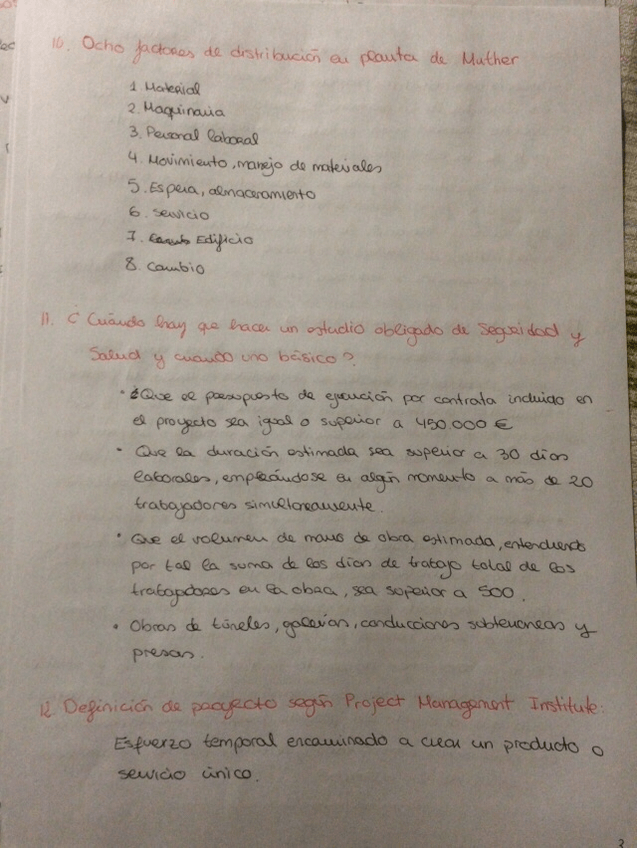 10. Ocho factores de distribución en planta de Muther
1 Material
2. Maquinaria
3. Personal laboral
4. Movimiento, manejo de materiales
5. Espera, almacenamiento
6. Servicio
7. Edificio
8. Cambio
11. ¿Cuándo hay que hacer un estudio obligado de Seguridad y
Salud y cuando uno básico?
• Que el presupuesto de ejecución por contrata incluido en
el proyecto sea igual o superior a 450.000 €
• Que la duración estimada sea superior a 30 días
laborales, empleándose en algún momento a más de 20
trabajadores simultáneamente.
• Que el volumen de mano de obra estimada, entendiendo
por tal la suma de los días de trabajo total de los
trabajadores en la obra, sea superior a 500.
• Obras de túneles, galerías, conducciones subterráneas y
presas.
12. Definición de proyecto según Project Management Institute:
Esfuerzo temporal encaminado a crear un producto o
servicio único.
3